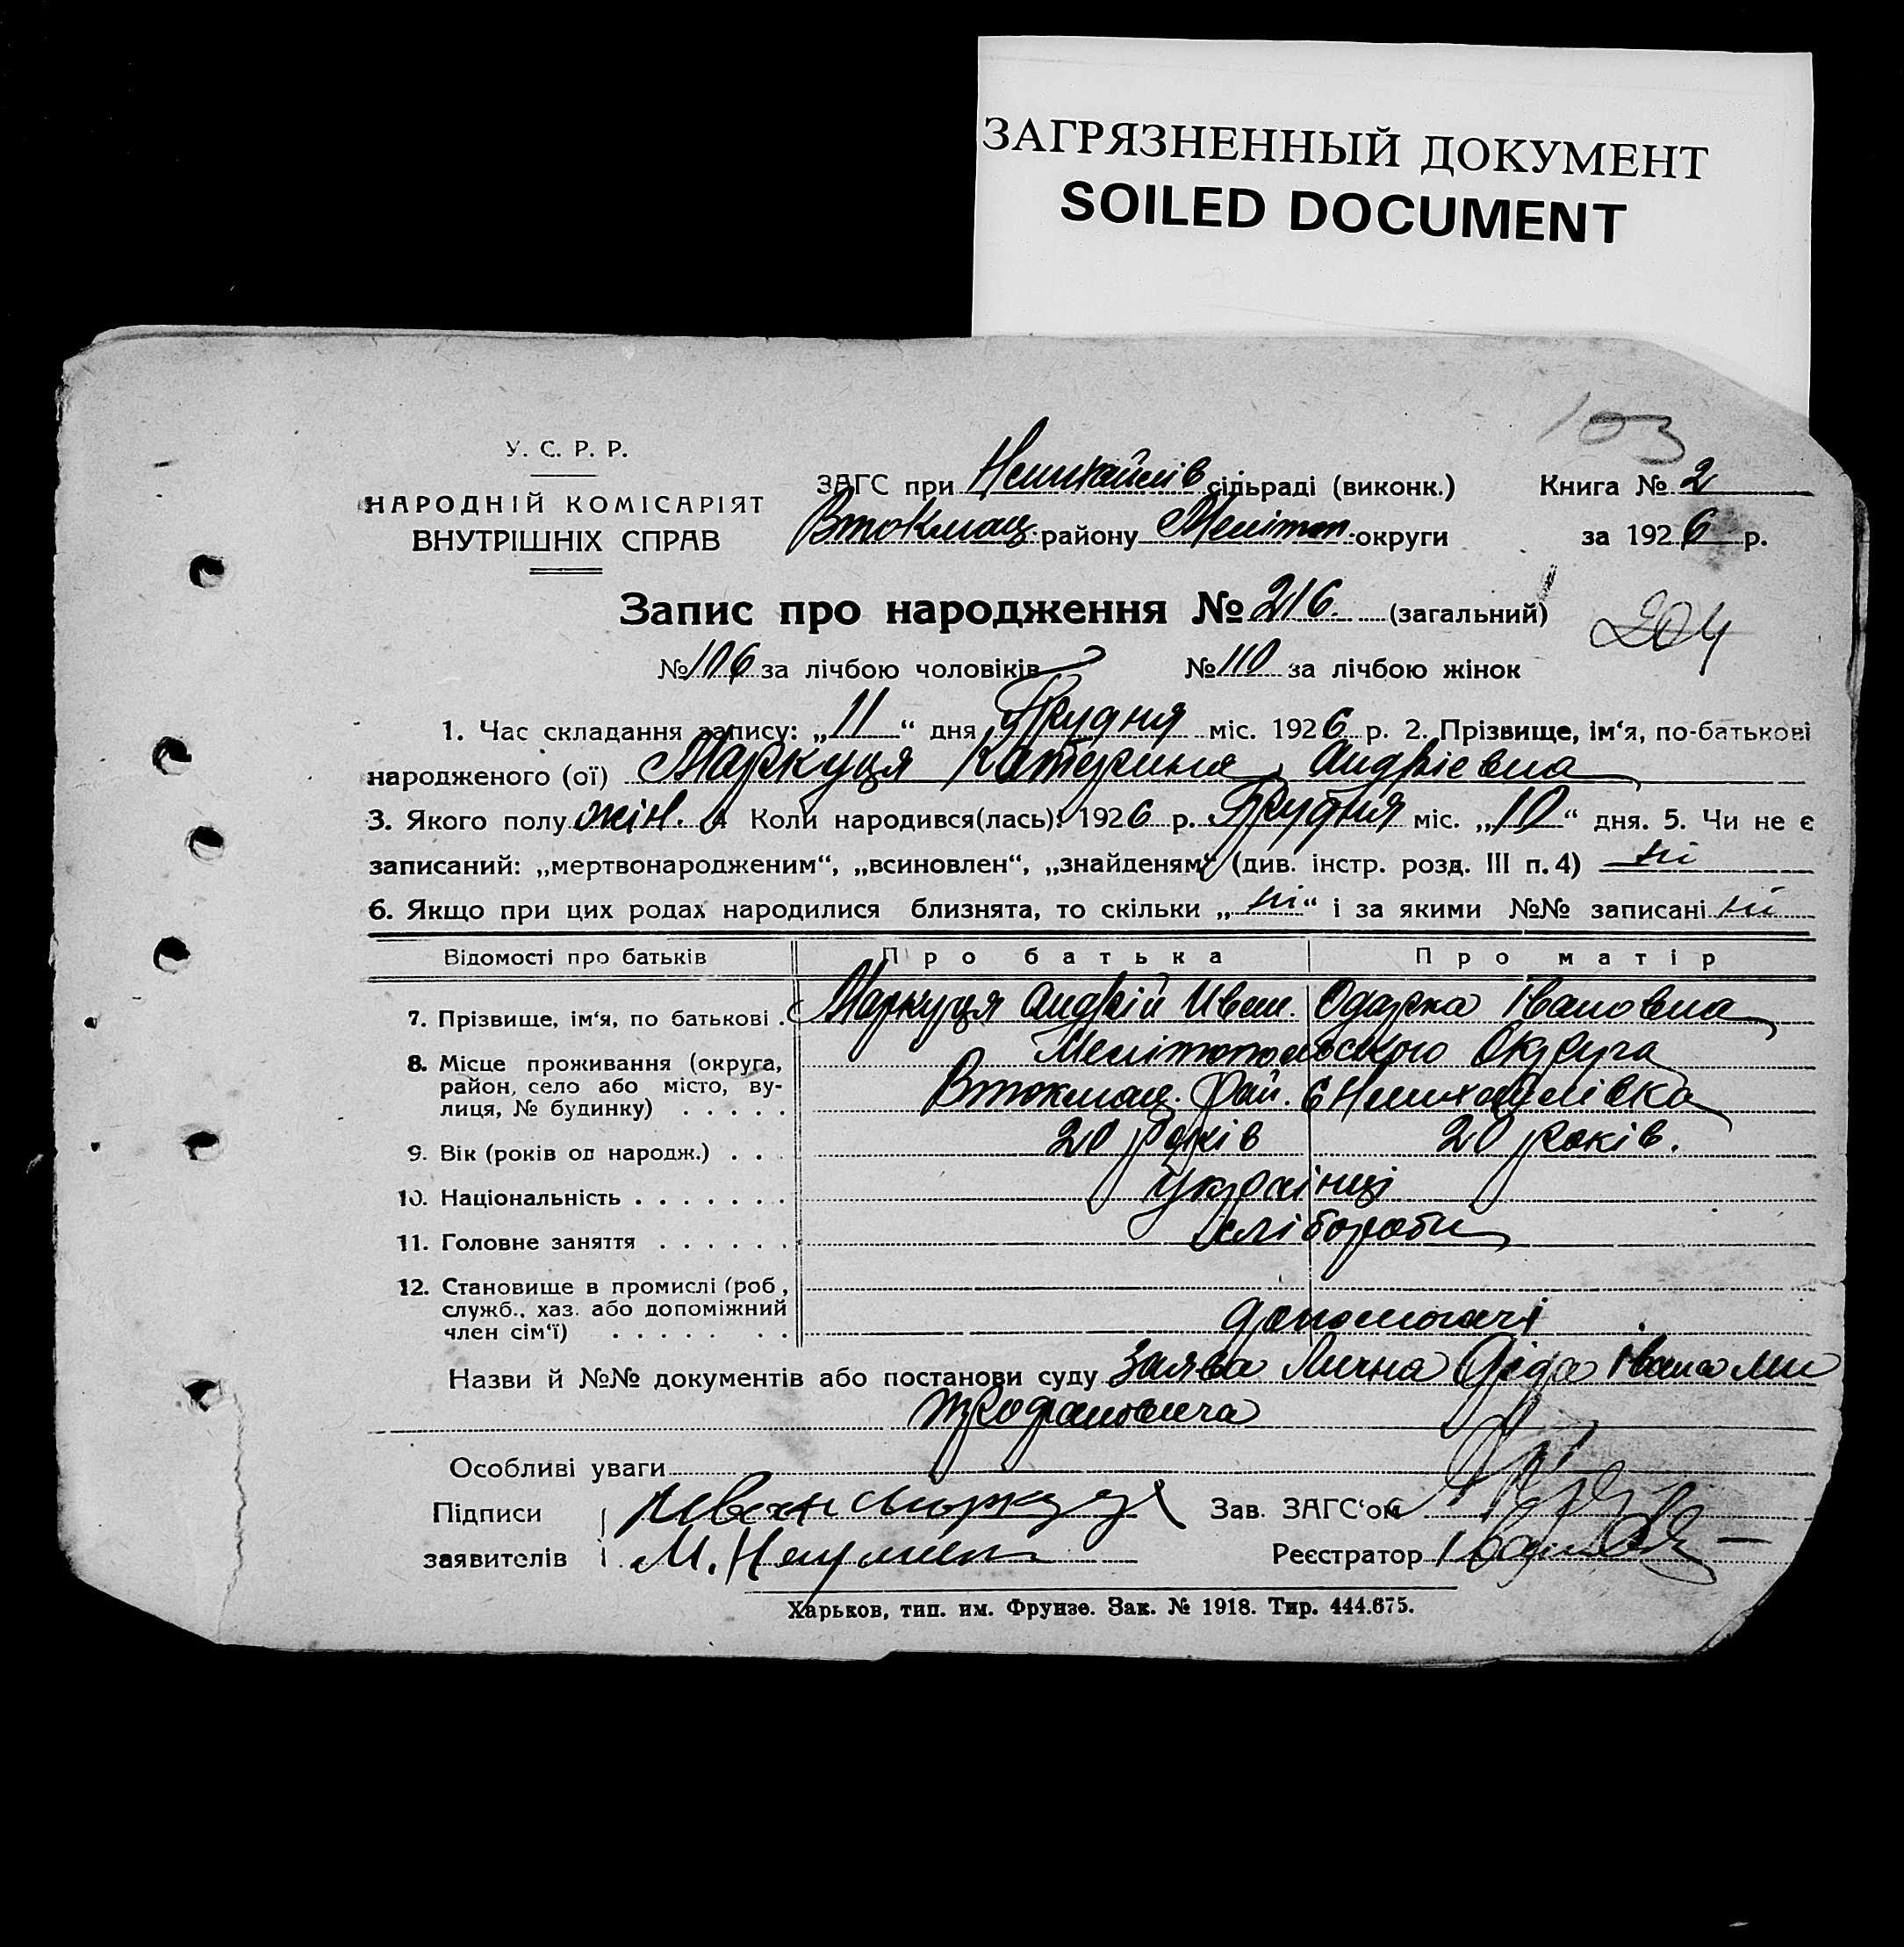 ЗАГРЯЗНЕННЫЙ ДОКУМЕНТ
SOILED DOCUMENT
103
У. С. Р. Р.
НАРОДНІЙ КОМІСАРІЯТ
ВНУТРІШНІХ СПРАВ
ЗАГС при Немихайлів сільраді (виконк.) Книга № 2
Втокмац. району Меліт. округи за 1926 р.
Запис про народження № 216 (загальний)
204
№ 106 за лічбою чоловіків № 110 за лічбою жінок
1. Час складання запису: „11“ дня Грудня міс. 1926 р. 2. Прізвище, ім‘я, по-батькові
народженого (ої) Маркуця Катерина Андріевна
3. Якого полу жін. 4 Коли народився(лась): 1926 р. Грудня міс. „10“ дня. 5. Чи не є
записаний: „мертвонародженим“, „всиновлен“, „знайденям“ (див. інстр. розд. III п. 4) ні
6. Якщо при цих родах народилися близнята, то скільки „ні“ і за якими №№ записані ні
Відомості про батьків Про батька Про матір
7. Прізвище, ім‘я, по батькові . Маркуця Андрій Иван. Одарка Івановна
8. Місце проживання (округа, Мелітопольского Округа
район, село або місто, ву-
лиця, № будинку) . . . . . Втокмац. рай. с Немихайлівка
9. Вік (років од народж.) . . . 20 років 20 років.
10. Національність . . . . . . . українці
11. Головне заняття . . . . . . хлібороби
12. Становище в промислі (роб.,
служб., хаз. або допоміжний
член сім‘ї) . . . . . . . допомогачі
Назви й №№ документів або постанови суду Заява Лична Діда Івана Ми
трофановича
Особливі уваги
Підписи Иван Маркуця Зав. ЗАГС‘ом
заявителів М. Реєстратор
Харьков, тип. им. Фрунзе. Зак. № 1918. Тир. 444.675.